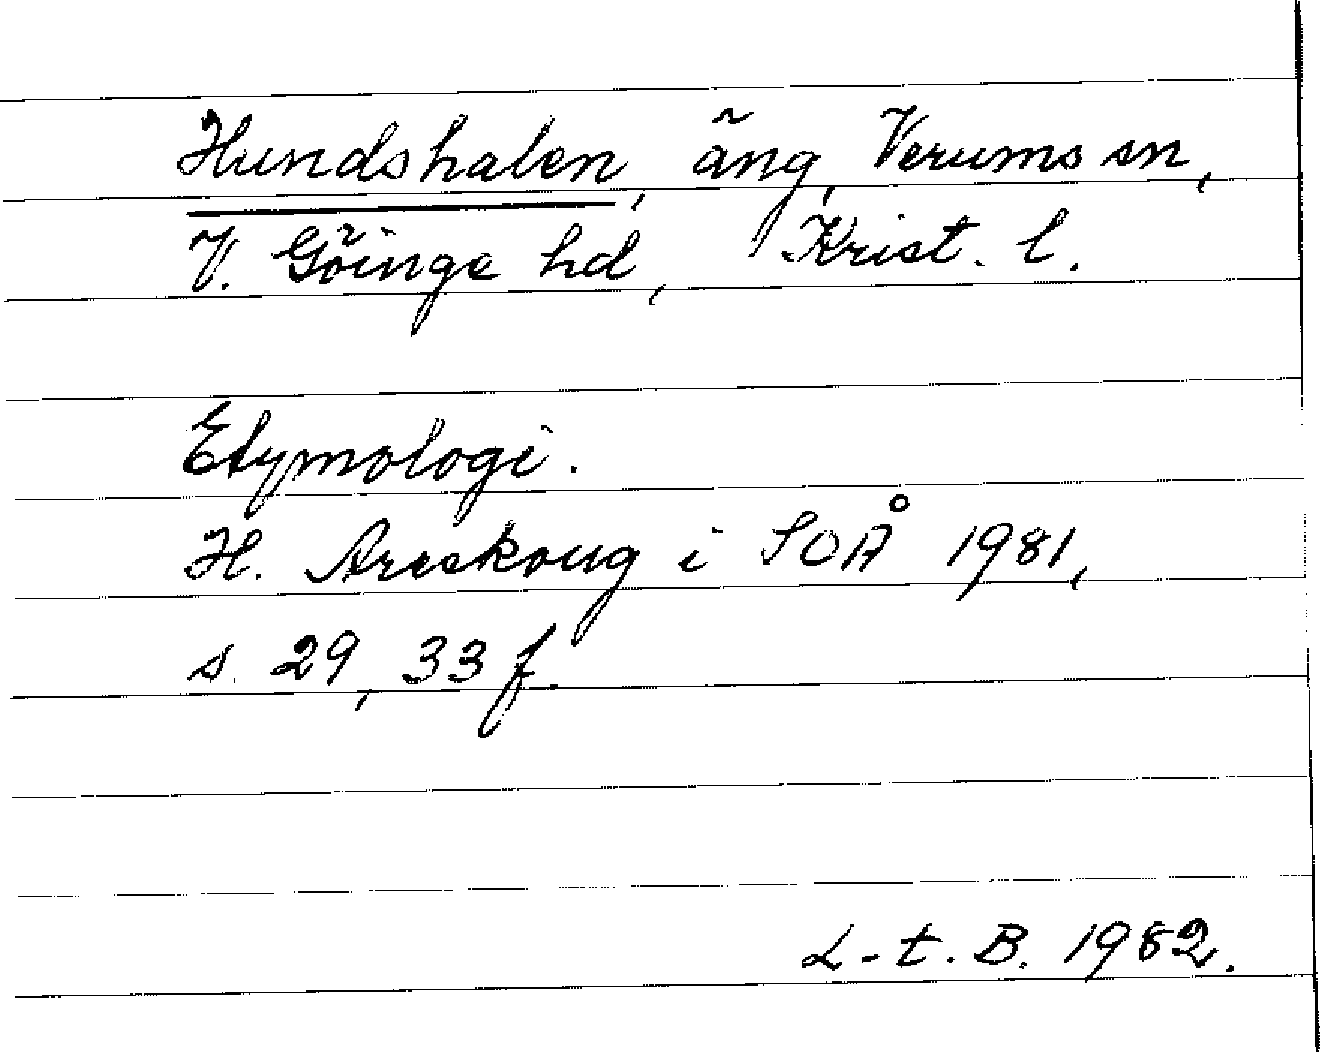 Hundshalen, äng, Verums sn,
V. Göinge hd, Krist. l.
Etymologi.
H. Areskoug i SOÅ 1981,
s. 29, 33 f.
L-t. B. 1982.